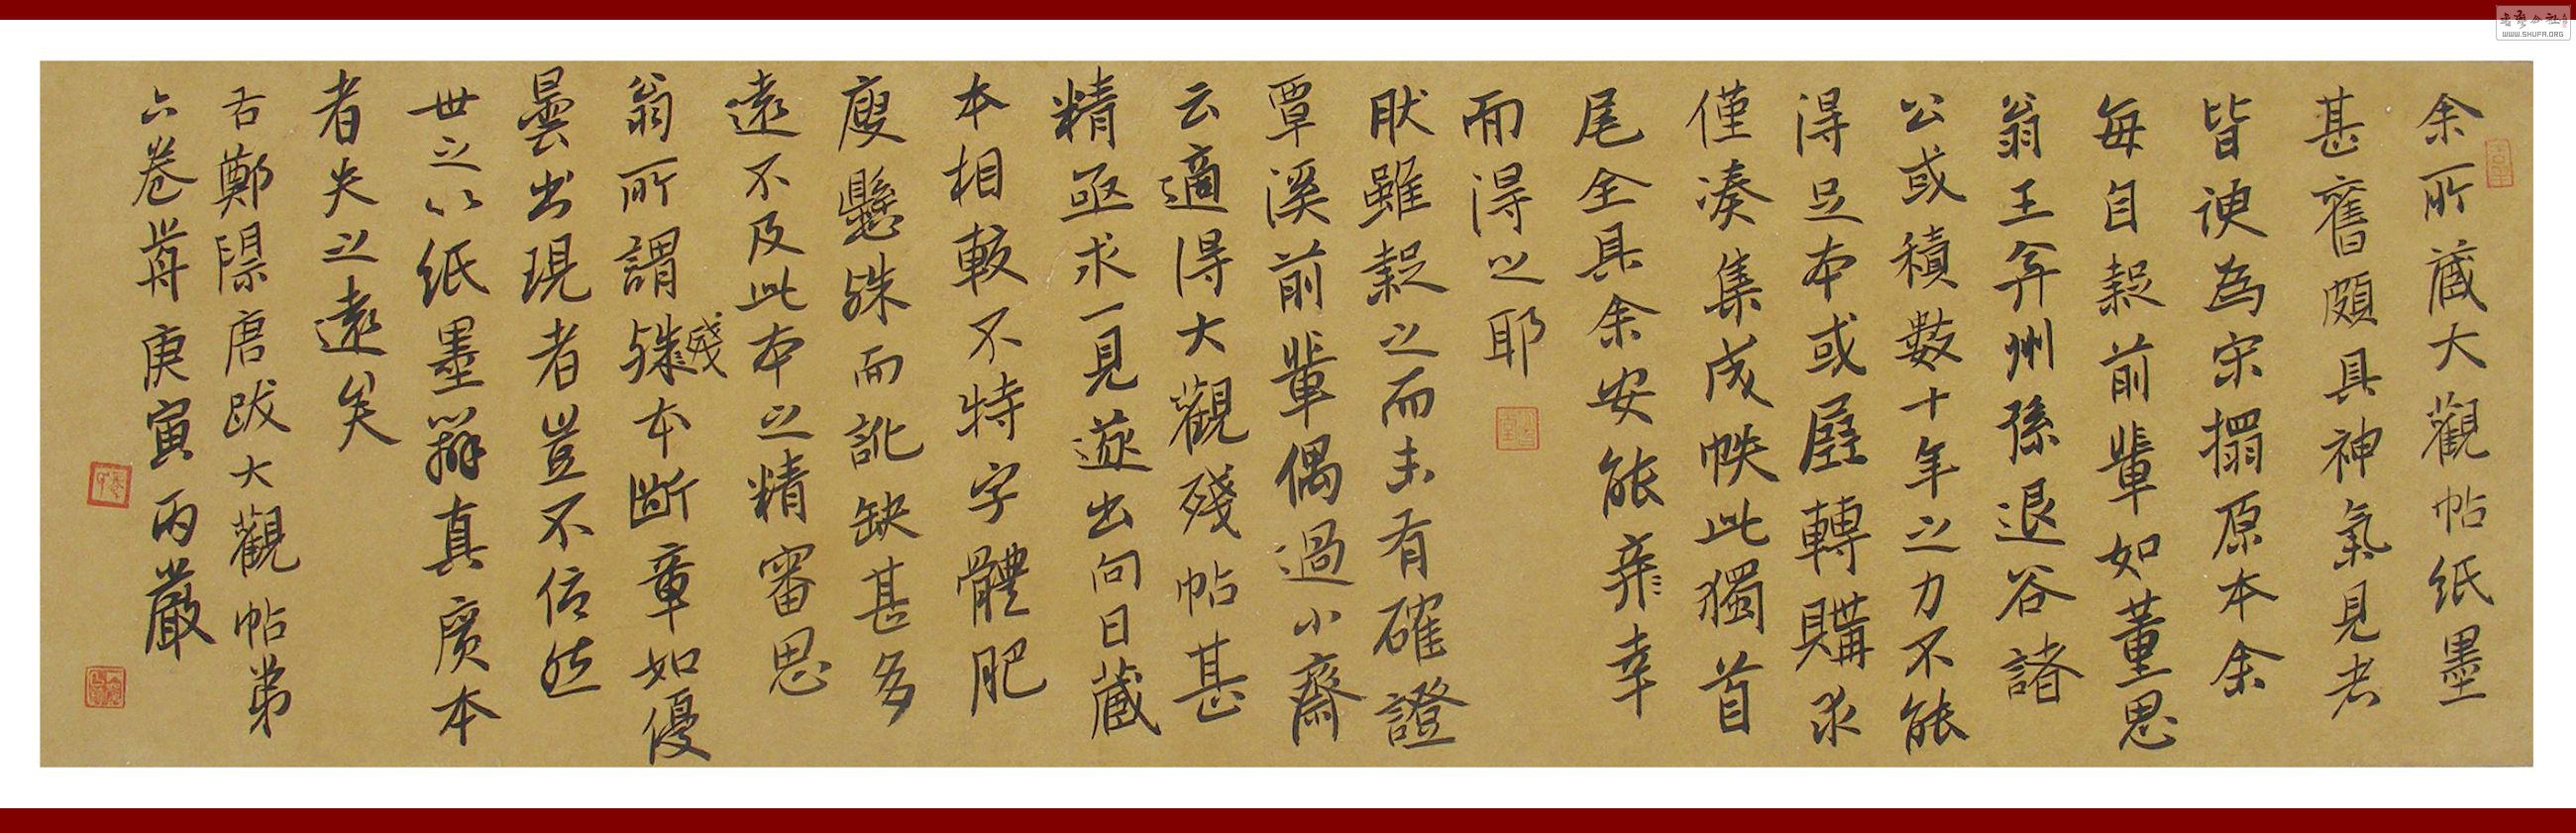 余所藏大觀帖紙墨
甚舊頗具神氣見者
皆諛為宋搨原本余
每自疑前輩如董思
翁王弇州孫退谷諸
公或積數十年之力不能
得足本或展轉購求
僅湊集成帙此獨首
尾全具余安能幸
而得之耶
肰雖疑之而未有確證
覃溪前輩偶過小齋
云適得大觀殘帖甚
精亟求一見遂出向日藏
本相較不特字體肥
廋懸殊而訛缺甚多
遠不及此本之精審思
翁所謂殘本斷章如優
曇出現者豈不信然
世之以紙墨辨真贋本
者失之遠矣
右鄭際唐跋大觀帖第
六卷 庚寅丙嚴
WWW.SHUFA.ORG